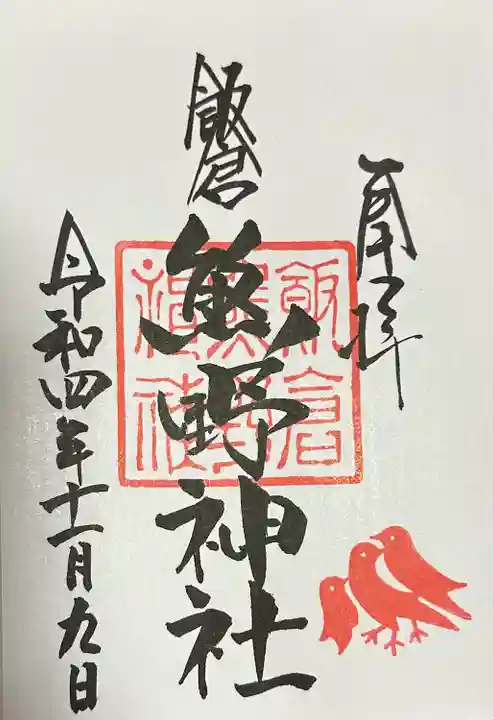 奉拝
飯倉
熊野神社
飯倉
熊野
神社
令和四年十一月九日